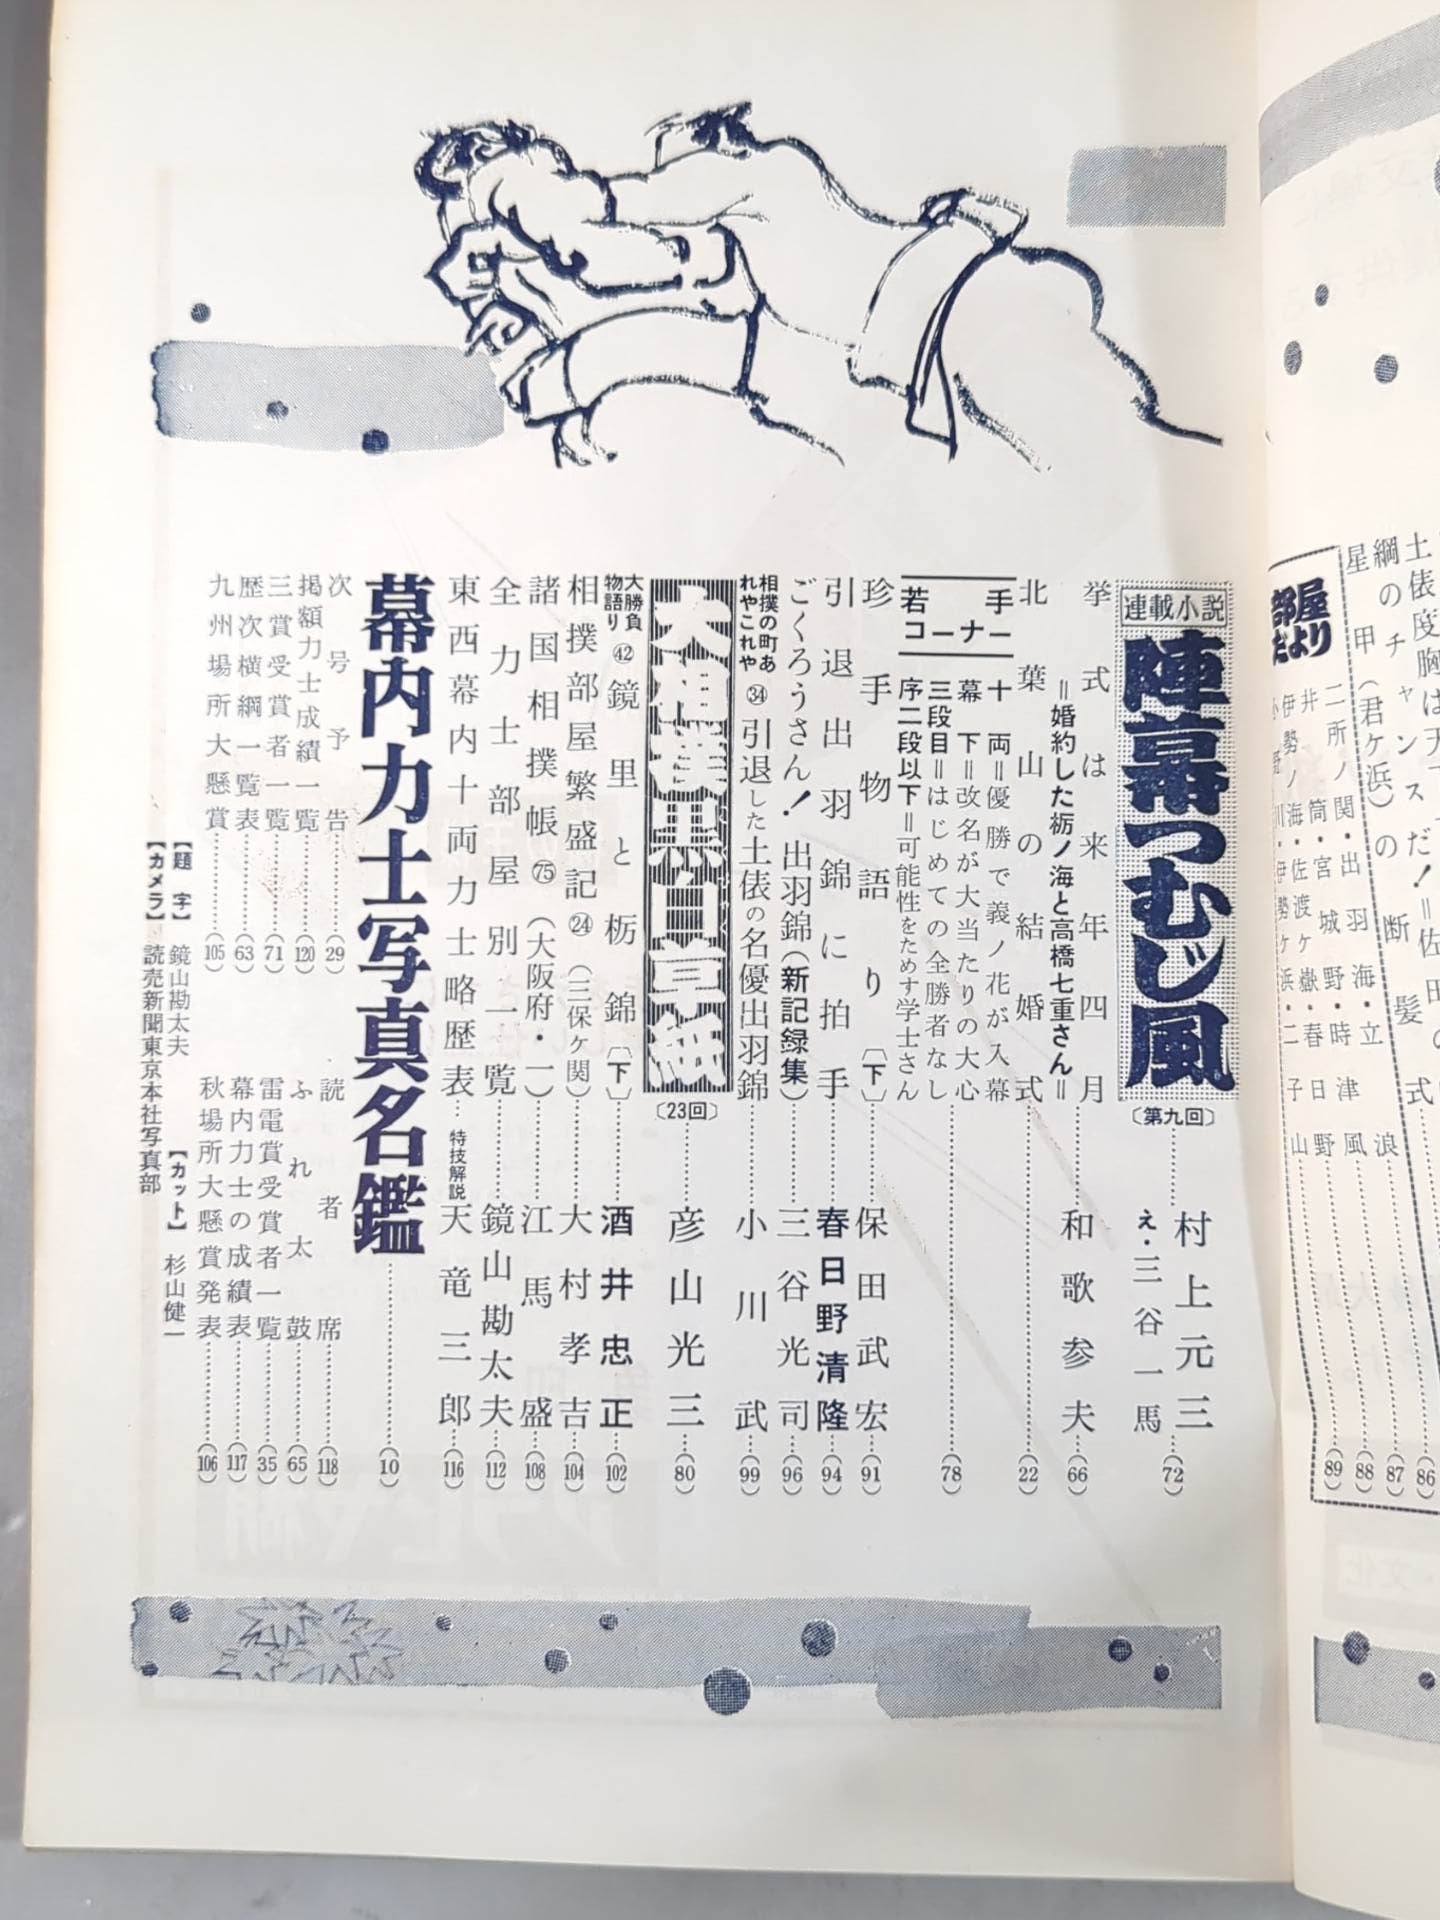 土俵度胸は天下一だ！＝佐田の
綱のチャンス
星甲（君ケ浜）の断髪式……(86)
部屋だより
二所ノ関・出羽海・立浪……(87)
井筒・宮城野・時津風……(88)
伊勢ノ海・佐渡ケ嶽・春日野……(89)
小野川・伊勢ケ浜・二子山
連載小説
陣幕つむじ風
〔第九回〕……村上元三
え・三谷一馬
(72)
挙式は来年四月……和歌参夫……(66)
＝婚約した栃ノ海と高橋七重さん＝
北葉山の結婚式……(22)
若手コーナー
十両＝優勝で義ノ花が入幕
幕下＝改名が大当たりの大心
三段目＝はじめての全勝者なし
序二段以下＝可能性をためす学士さん
(78)
珍手物語り〔下〕……保田武宏……(91)
引退出羽錦に拍手……春日野清隆……(94)
ごくろうさん！出羽錦（新記録集）……三谷光司……(96)
相撲の町あれやこれや㉞引退した土俵の名優出羽錦……小川武……(99)
大相撲黒白草紙〔23回〕……彦山光三……(80)
大勝負物語り㊷鏡里と栃錦〔下〕……酒井忠正……(102)
相撲部屋繁盛記㉔（三保ケ関）……大村孝吉……(104)
諸国相撲帳㊆（大阪府・一）……江馬盛……(108)
全力士部屋別一覧……鏡山勘太夫……(112)
東西幕内十両力士略歴表…特技解説 天竜三郎……(116)
幕内力士写真名鑑……(10)
次号予告……(29)
読者席……(118)
掲額力士成績一覧……(120)
ふれ太鼓……(65)
三賞受賞者一覧……(71)
雷電賞受賞者一覧……(35)
歴次横綱一覧表……(63)
幕内力士の成績表……(117)
九州場所大懸賞……(105)
秋場所大懸賞発表……(106)
【題字】鏡山勘太夫
【カット】杉山健一
【カメラ】読売新聞東京本社写真部